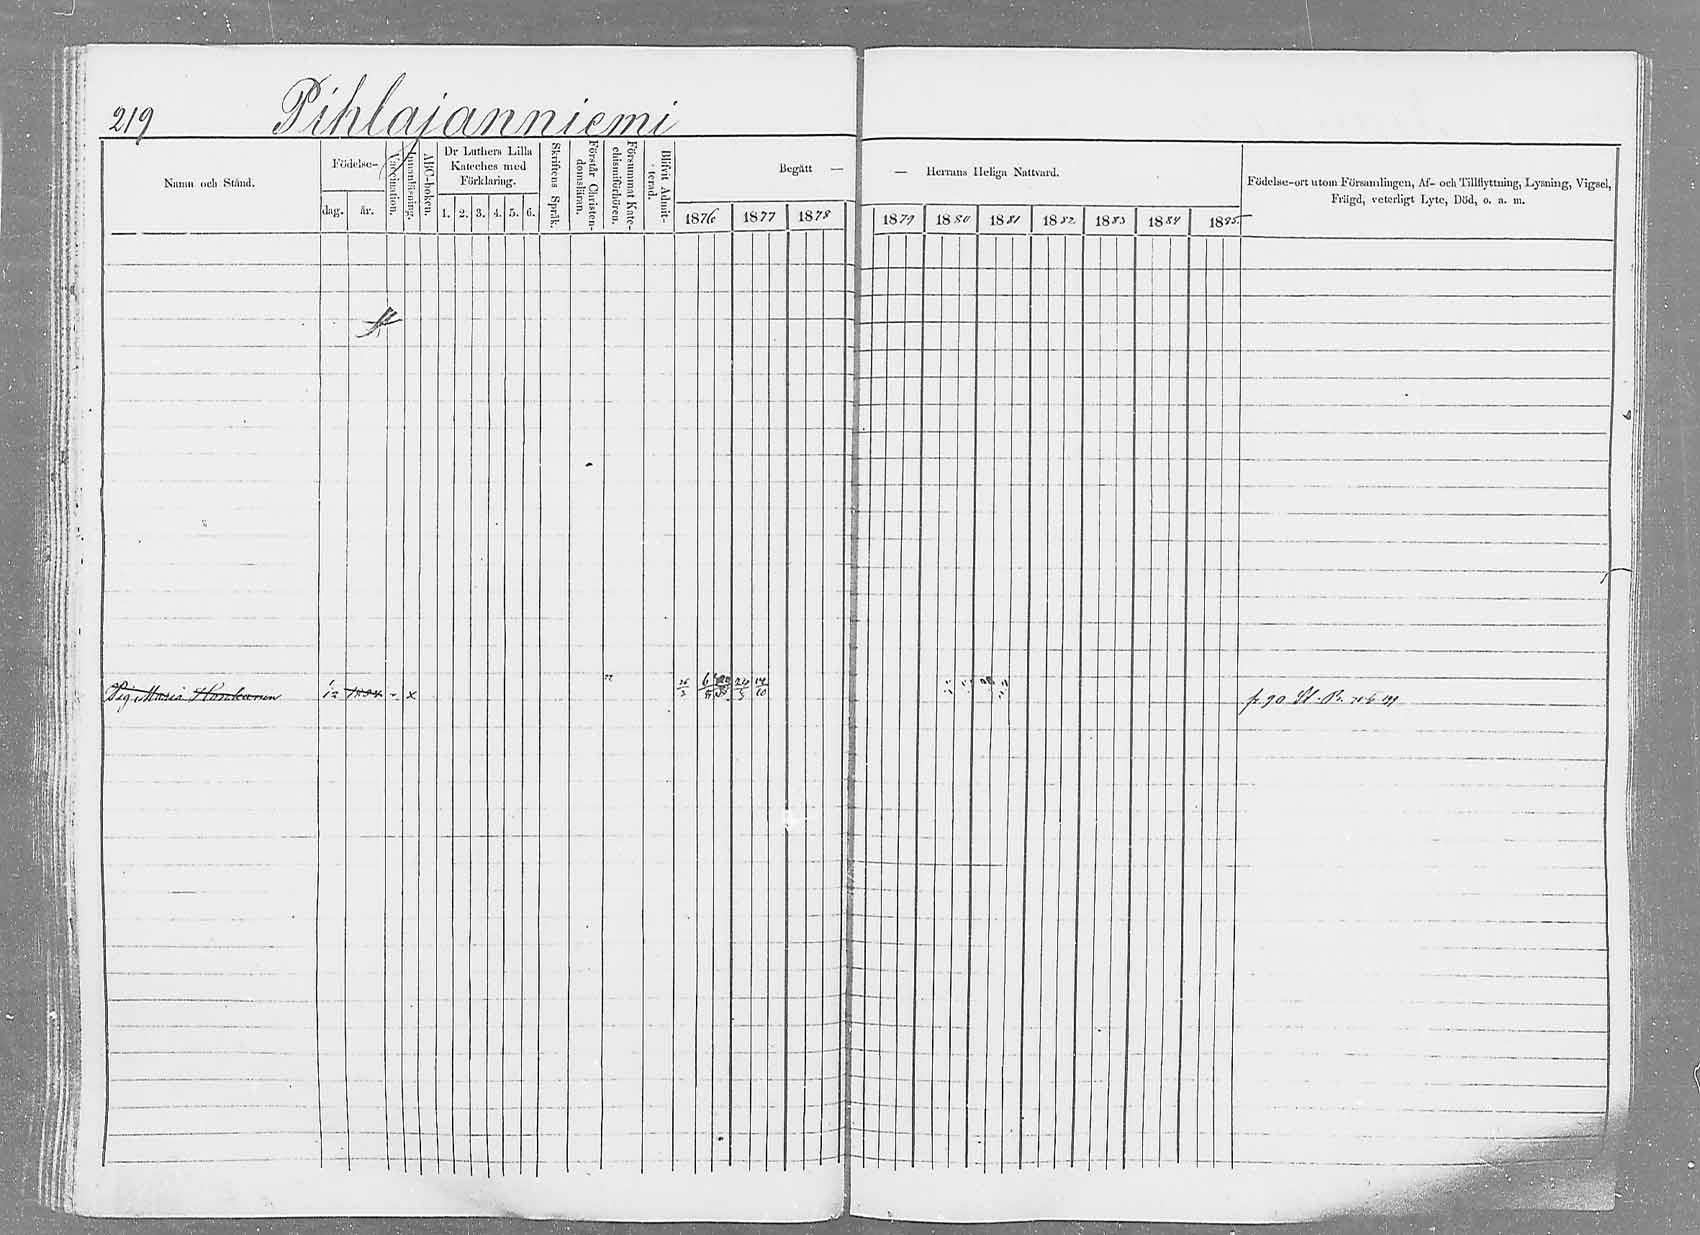 219 Pihlajanniemi
Namn och Stånd.
Födelse-
dag. år.
Vaccination.
Innanläsning.
ABC-boken.
Dr Luthers Lilla
Kateches med
Förklaring.
1. 2. 3. 4. 5. 6.
Skriftens Språk.
Förstår Christen-
domsläran.
Försummat Kate-
chismiförhören.
Blifvit Admit-
terad.
Begått —
1876 1877 1878
— Herrans Heliga Nattvard.
1879 1880 1881 1882 1883 1884 1885
Födelse-ort utom Församlingen, Af- och Tillflyttning, Lysning, Vigsel,
Frägd, veterligt Lyte, Död, o. a. m.
Pig. Maria x
24/5 14/10